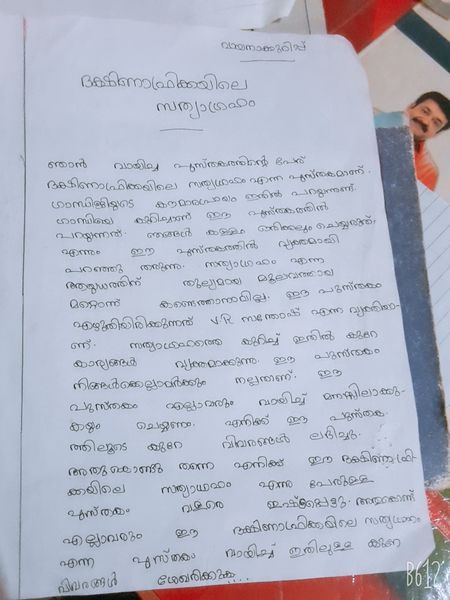 വായനാക്കുറിപ്പ്
ദക്ഷിണാഫ്രിക്കയിലെ
സത്യാഗ്രഹം
ഞാൻ വായിച്ച പുസ്തകത്തിന്റെ പേര്
ദക്ഷിണാഫ്രിക്കയിലെ സത്യഗ്രഹം എന്ന പുസ്തകമാണ്.
ഗാന്ധിജിയുടെ കൗമാരപ്രായം ഇതിൽ പറയുന്നുണ്ട്.
ഗാന്ധിയെ കുറിച്ചാണ് ഈ പുസ്തകത്തിൽ
പറയുന്നത്. ഞങ്ങൾ കള്ളം ഒരിക്കലും ചെയ്യരുത്
എന്നും ഈ പുസ്തകത്തിൽ വ്യക്തമായി
പറഞ്ഞു തരുന്നു. സത്യാഗ്രഹം എന്ന
ആയുധത്തിന് തുല്യമായ മൂല്യവത്തായ
മറ്റൊന്ന് കണ്ടെത്താനാവില്ല. ഈ പുസ്തകം
എഴുതിയിരിക്കുന്നത് V.R സന്തോഷ് എന്ന വ്യക്തിയാ-
ണ്. സത്യാഗ്രഹത്തെ കുറിച്ച് ഇതിൽ കുറേ
കാര്യങ്ങൾ വ്യക്തമാക്കുന്നു. ഈ പുസ്തകം
നിങ്ങൾക്കെല്ലാവർക്കും നല്ലതാണ്. ഈ
പുസ്തകം എല്ലാവരും വായിച്ച് മനസ്സിലാക്കു-
കയും ചെയ്യണം. എനിക്ക് ഈ പുസ്തക
ത്തിലൂടെ കുറേ വിവരങ്ങൾ ലഭിച്ചു.
അതുകൊണ്ടു തന്നെ എനിക്ക് ഈ ദക്ഷിണാഫ്രി-
ക്കയിലെ സത്യാഗ്രഹം എന്ന പേരുള്ള
പുസ്തകം വളരെ ഇഷ്ടപ്പെട്ടു. അതുകൊണ്ട്
എല്ലാവരും ഈ ദക്ഷിണാഫ്രിക്കയിലെ സത്യഗ്രഹം
എന്ന പുസ്തകം വായിച്ച് ഇതിലുള്ള കുറേ
വിവരങ്ങൾ ശേഖരിക്കുക...
B612